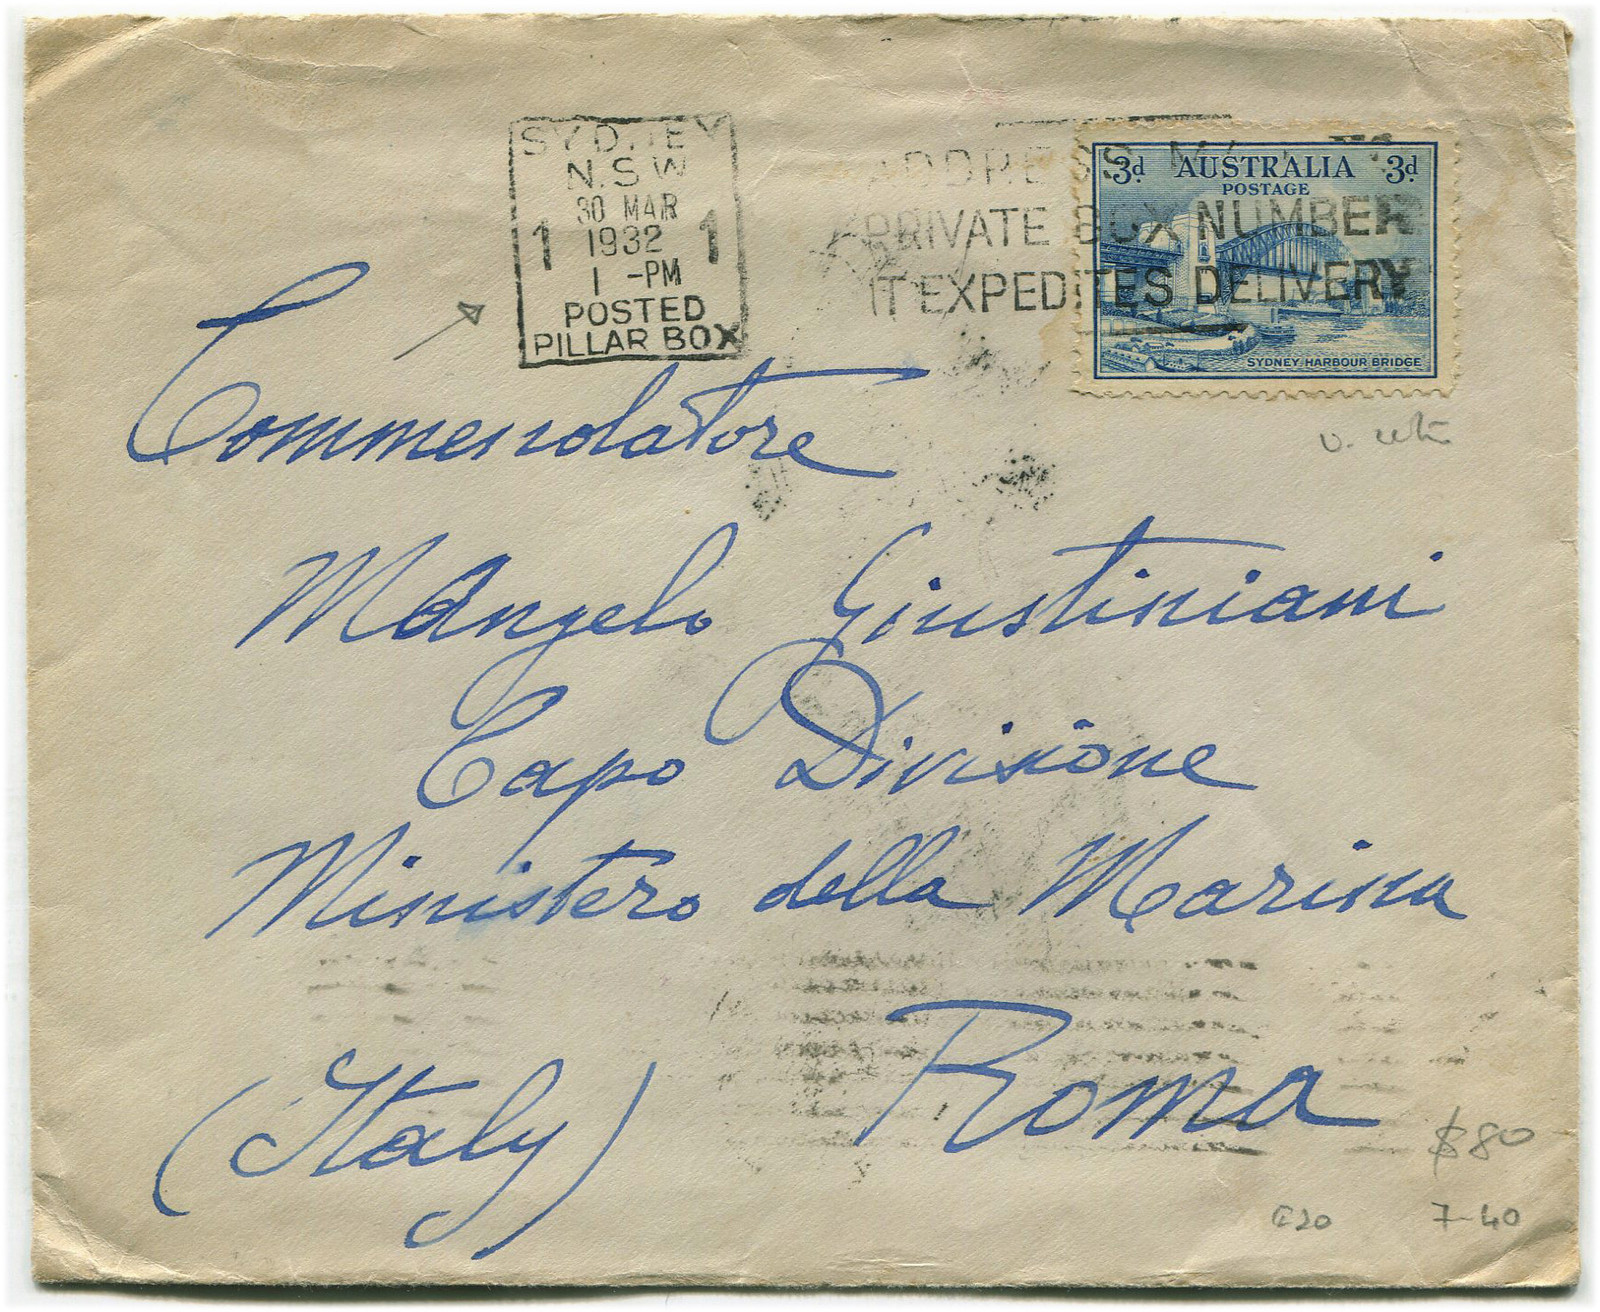 SYDNEY
N.S.W
30 MAR
1 1932 1
1 -PM
POSTED
PILLAR BOX
ADDRESS MAIL TO
PRIVATE BOX NUMBER
IT EXPEDITES DELIVERY
3d AUSTRALIA 3d
POSTAGE
SYDNEY HARBOUR BRIDGE
Commendatore
M Angelo Giustiniani
Capo Divisione
Ministero della Marina
Roma
(Italy)
$80
7-40